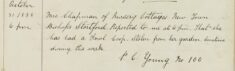 October
31 1888 Mrs Chapman of Nursery Cottages New Town
6 p.m. Bishops Stortford Reported to me at 6 p.m. that she
has had a Fowl Coop Stolen from her garden sometime
during the week.
P.C. Young No 166